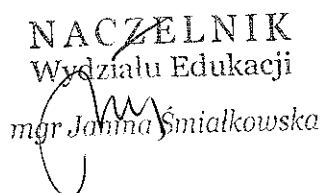 NACZELNIK
Wydziału Edukacji
mgr Janina Śmiałkowska